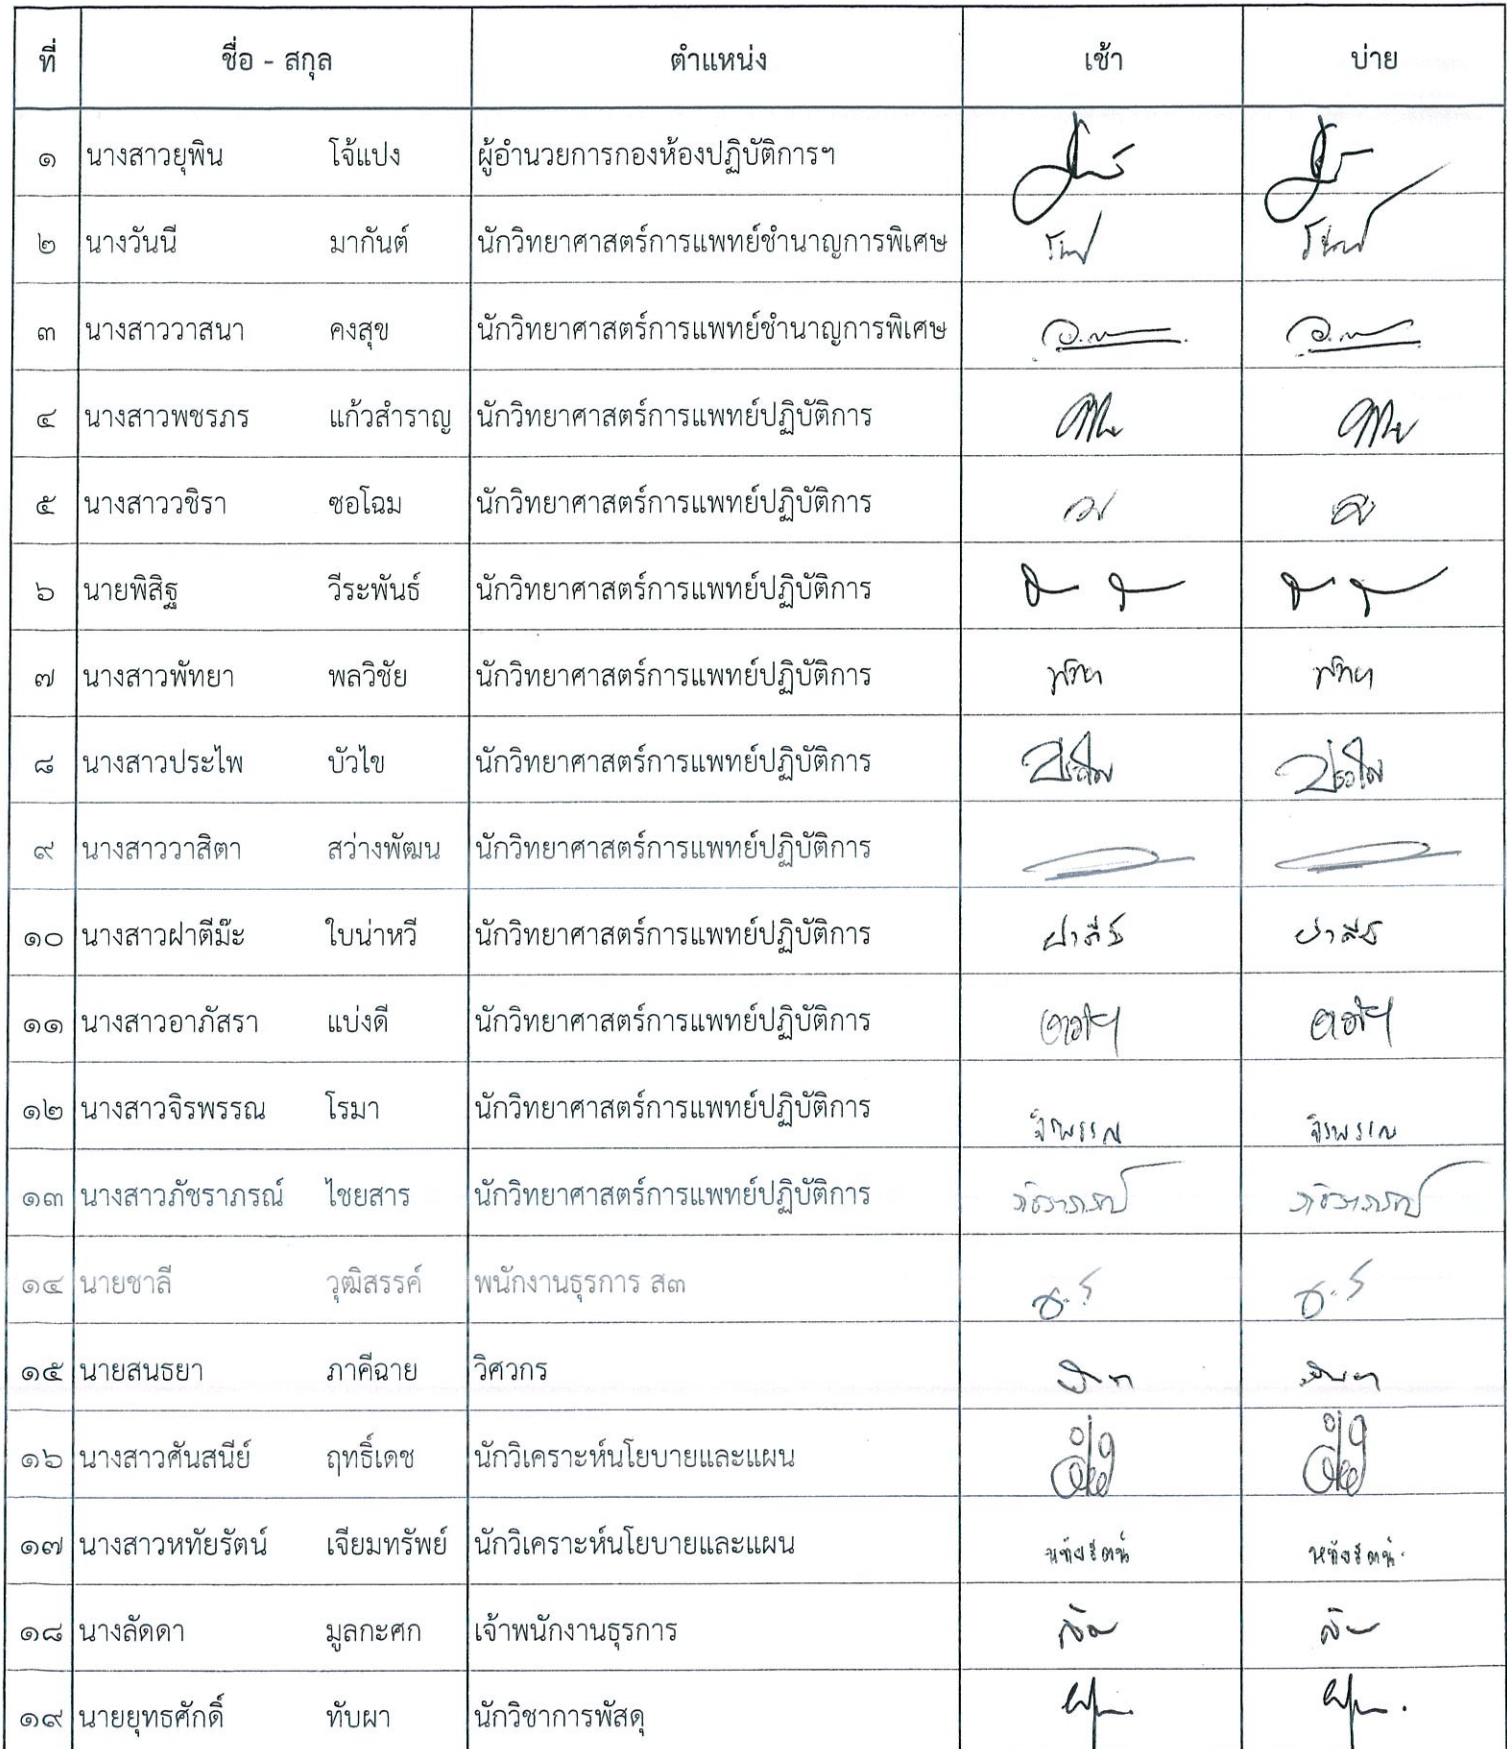 ที่ ชื่อ - สกุล ตำแหน่ง เช้า บ่าย
๑ นางสาวยุพิน โจ้แปง ผู้อำนวยการกองห้องปฏิบัติการฯ
๒ นางวันนี มากันต์ นักวิทยาศาสตร์การแพทย์ชำนาญการพิเศษ
๓ นางสาววาสนา คงสุข นักวิทยาศาสตร์การแพทย์ชำนาญการพิเศษ
๔ นางสาวพชรภร แก้วสำราญ นักวิทยาศาสตร์การแพทย์ปฏิบัติการ
๕ นางสาววชิรา ซอโฉม นักวิทยาศาสตร์การแพทย์ปฏิบัติการ
๖ นายพิสิฐ วีระพันธ์ นักวิทยาศาสตร์การแพทย์ปฏิบัติการ
๗ นางสาวพัทยา พลวิชัย นักวิทยาศาสตร์การแพทย์ปฏิบัติการ พัทยา พัทยา
๘ นางสาวประไพ บัวไข นักวิทยาศาสตร์การแพทย์ปฏิบัติการ ประไพ ประไพ
๙ นางสาววาสิตา สว่างพัฒน นักวิทยาศาสตร์การแพทย์ปฏิบัติการ
๑๐ นางสาวฝาตีม๊ะ ใบน่าหวี นักวิทยาศาสตร์การแพทย์ปฏิบัติการ
๑๑ นางสาวอาภัสรา แบ่งดี นักวิทยาศาสตร์การแพทย์ปฏิบัติการ
๑๒ นางสาวจิรพรรณ โรมา นักวิทยาศาสตร์การแพทย์ปฏิบัติการ จิรพรรณ จิรพรรณ
๑๓ นางสาวภัชราภรณ์ ไชยสาร นักวิทยาศาสตร์การแพทย์ปฏิบัติการ ภัชราภรณ์ ภัชราภรณ์
๑๔ นายชาลี วุฒิสรรค์ พนักงานธุรการ ส๓
๑๕ นายสนธยา ภาคีฉาย วิศวกร
๑๖ นางสาวศันสนีย์ ฤทธิ์เดช นักวิเคราะห์นโยบายและแผน
๑๗ นางสาวหทัยรัตน์ เจียมทรัพย์ นักวิเคราะห์นโยบายและแผน หทัยรัตน์ หทัยรัตน์
๑๘ นางลัดดา มูลกะศก เจ้าพนักงานธุรการ
๑๙ นายยุทธศักดิ์ ทับผา นักวิชาการพัสดุ